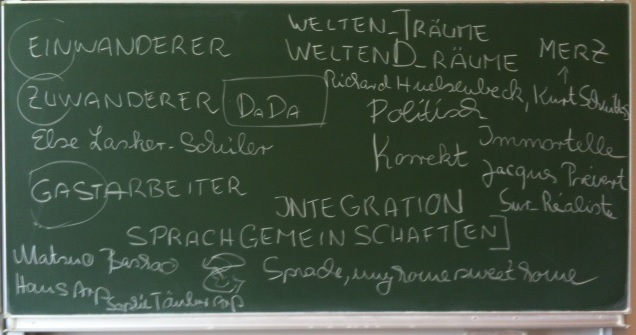 WELTEN_TRÄUME
EINWANDERER WELTEND_RÄUME MERZ
ZUWANDERER DADA Richard Huelsenbeck, Kurt Schwitters
Politisch
Else Lasker-Schüler Korrekt Immortelle
Jacques Prévert
GASTARBEITER INTEGRATION Sur-Réaliste
SPRACHGEMEINSCHAFT[EN]
Matsuo Bashao Sprache, my home sweet home
Hans Arp Sophie Täuber Arp